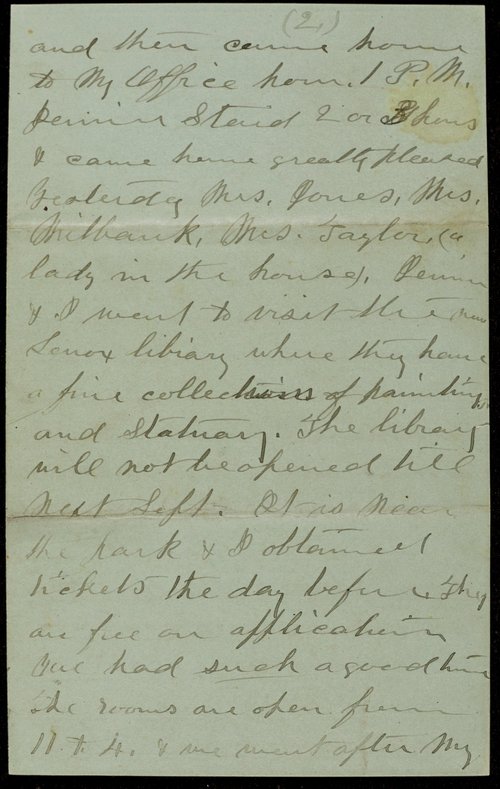 (2.)
and then came home
to My Office hour. 1 P.M.
Jennie Staid 2 or 3 hours
& came home greatly pleased
Yesterday Mrs. Jones, Mrs.
Milbank, Mrs. Taylor, (a
lady in the house), Jennie
& I went to visit the new
Lenox library where they have
a fine collection of paintings
and Statuary. The library
will not be opened till
Next Sept. It is near
the park & I obtained
tickets the day before. They
are free on application
We had such a good time
The rooms are open from
11 t. 4. & we went after My